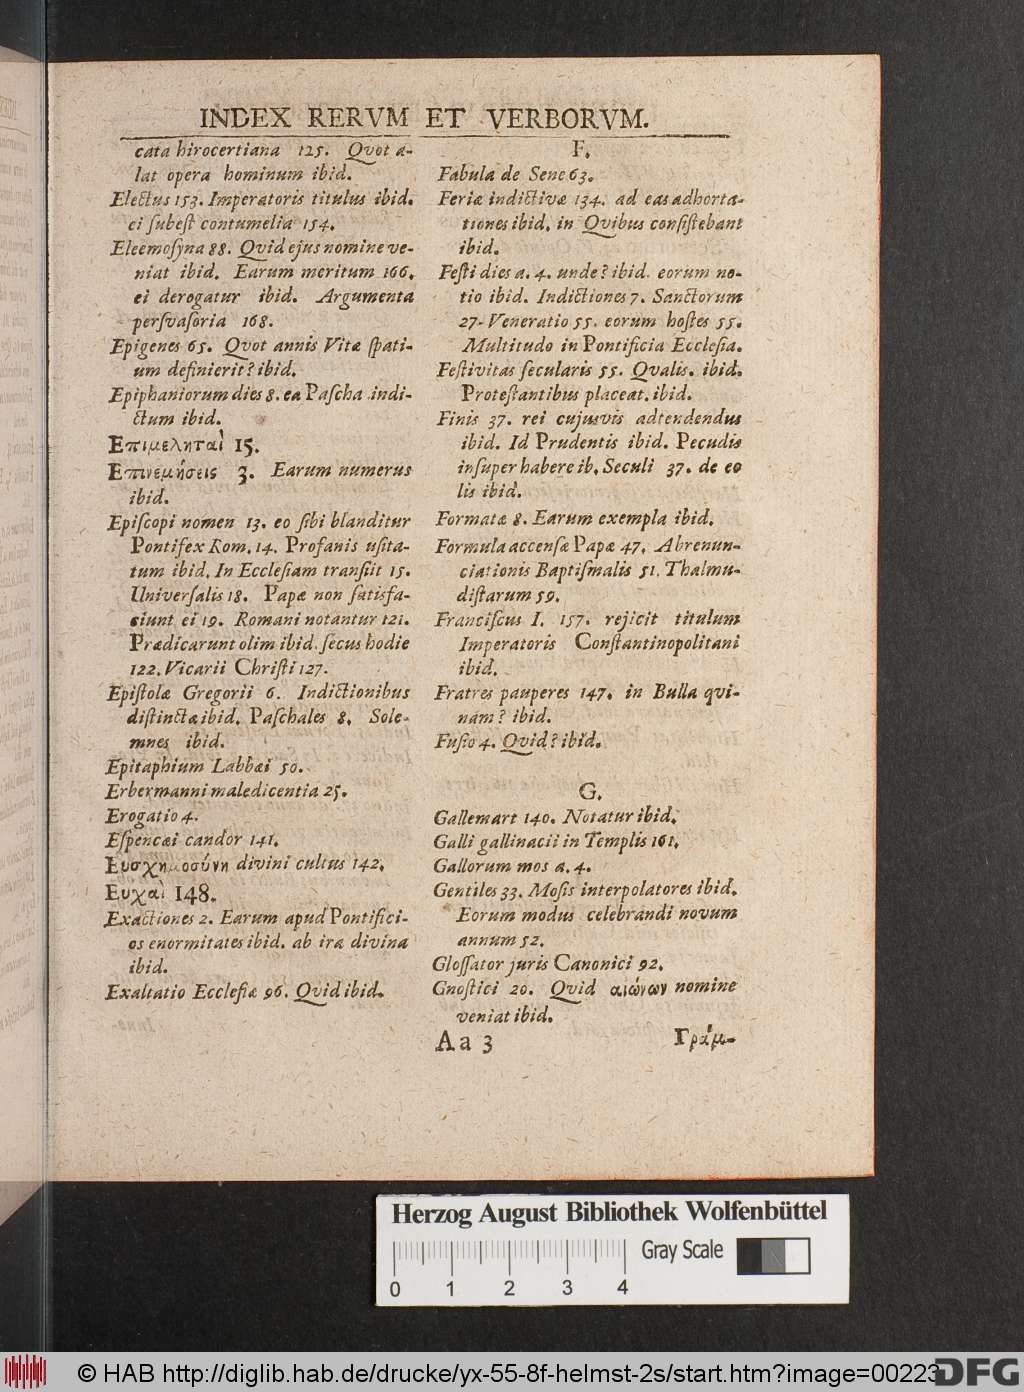 INDEX RERVM ET VERBORVM.
cata hirocertiana 125. Quot a-
lat opera hominum ibid.
Electus 153. Imperatoris titulus ibid.
ei ſubeſt contumelia 154.
Eleemoſyna 88. Qvid ejus nomine ve-
niat ibid. Earum meritum 166.
ei derogatur ibid. Argumenta
perſvaſoria 168.
Epigenes 65. Quot annis Vitæ ſpati-
um definierit? ibid.
Epiphaniorum dies 8. ea Paſcha indi-
ctum ibid.
Επιμεληταὶ 15.
Επινεμήσεις 3. Earum numerus
ibid.
Epiſcopi nomen 13. eo ſibi blanditur
Pontifex Rom. 14. Profanis uſita-
tum ibid. In Eccleſiam tranſiit 15.
Univerſalis 18. Papæ non ſatisfa-
ciunt ei 19. Romani notantur 121.
Prædicarunt olim ibid. ſecus hodie
122. Vicarii Chriſti 127.
Epiſtolæ Gregorii 6. Indictionibus
diſtinctæ ibid. Paſchales 8. Sole-
mnes ibid.
Epitaphium Labbæi 50.
Erbermanni maledicentia 25.
Erogatio 4.
Eſpencæi candor 141.
Ευσχημοσύνη divini cultus 142.
Ευχαὶ 148.
Exactiones 2. Earum apud Pontifici-
os enormitates ibid. ab ira divina
ibid.
Exaltatio Eccleſiæ 96. Qvid ibid.
F.
Fabula de Sene 63.
Feriæ indictivæ 134. ad eas adhorta-
tiones ibid. in Quibus conſiſtebant
ibid.
Feſti dies a. 4. unde? ibid. eorum no-
tio ibid. Indictiones 7. Sanctorum
27. Veneratio 55. eorum hoſtes 55.
Multitudo in Pontificia Eccleſia.
Feſtivitas ſecularis 55. Qvalis. ibid.
Proteſtantibus placeat. ibid.
Finis 37. rei cujusvis adtendendus
ibid. Id Prudentis ibid. Pecudis
inſuper habere ib. Seculi 37. de eo
lis ibid.
Formatæ 8. Earum exempla ibid.
Formula accenſæ Papæ 47. Abrenun-
ciationis Baptiſmalis 51. Thalmu-
diſtarum 59.
Franciſcus I. 157. rejicit titulum
Imperatoris Conſtantinopolitani
ibid.
Fratres pauperes 147. in Bulla qvi-
nam? ibid.
Fuſio 4. Qvid? ibid.
G.
Gallemart 140. Notatur ibid.
Galli gallinacii in Templis 161.
Gallorum mos a. 4.
Gentiles 33. Moſis interpolatores ibid.
Eorum modus celebrandi novum
annum 52.
Gloſſator juris Canonici 92.
Gnoſtici 20. Qvid αιώνων nomine
veniat ibid.
Aa 3 Γράμ-
Herzog August Bibliothek Wolfenbüttel
Gray Scale
0 1 2 3 4
© HAB http://diglib.hab.de/drucke/yx-55-8f-helmst-2s/start.htm?image=00223
DFG